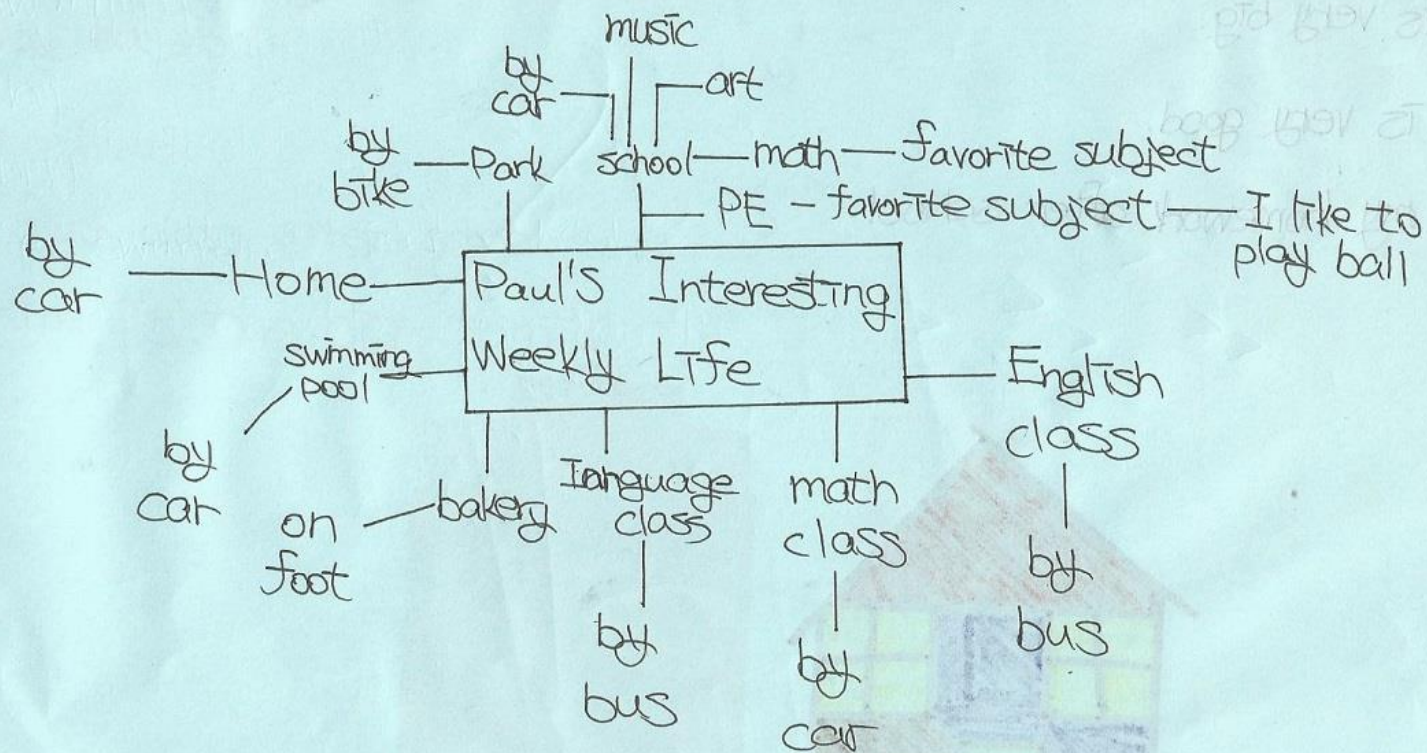 music
by
car
art
by
bike
Park
school
math
favorite subject
PE - favorite subject
I like to
play ball
by
car
Home
Paul's Interesting
Weekly Life
swimming
pool
by
car
English
class
by
bus
bakery
on
foot
language
class
by
bus
math
class
by
car
is very big
is very good